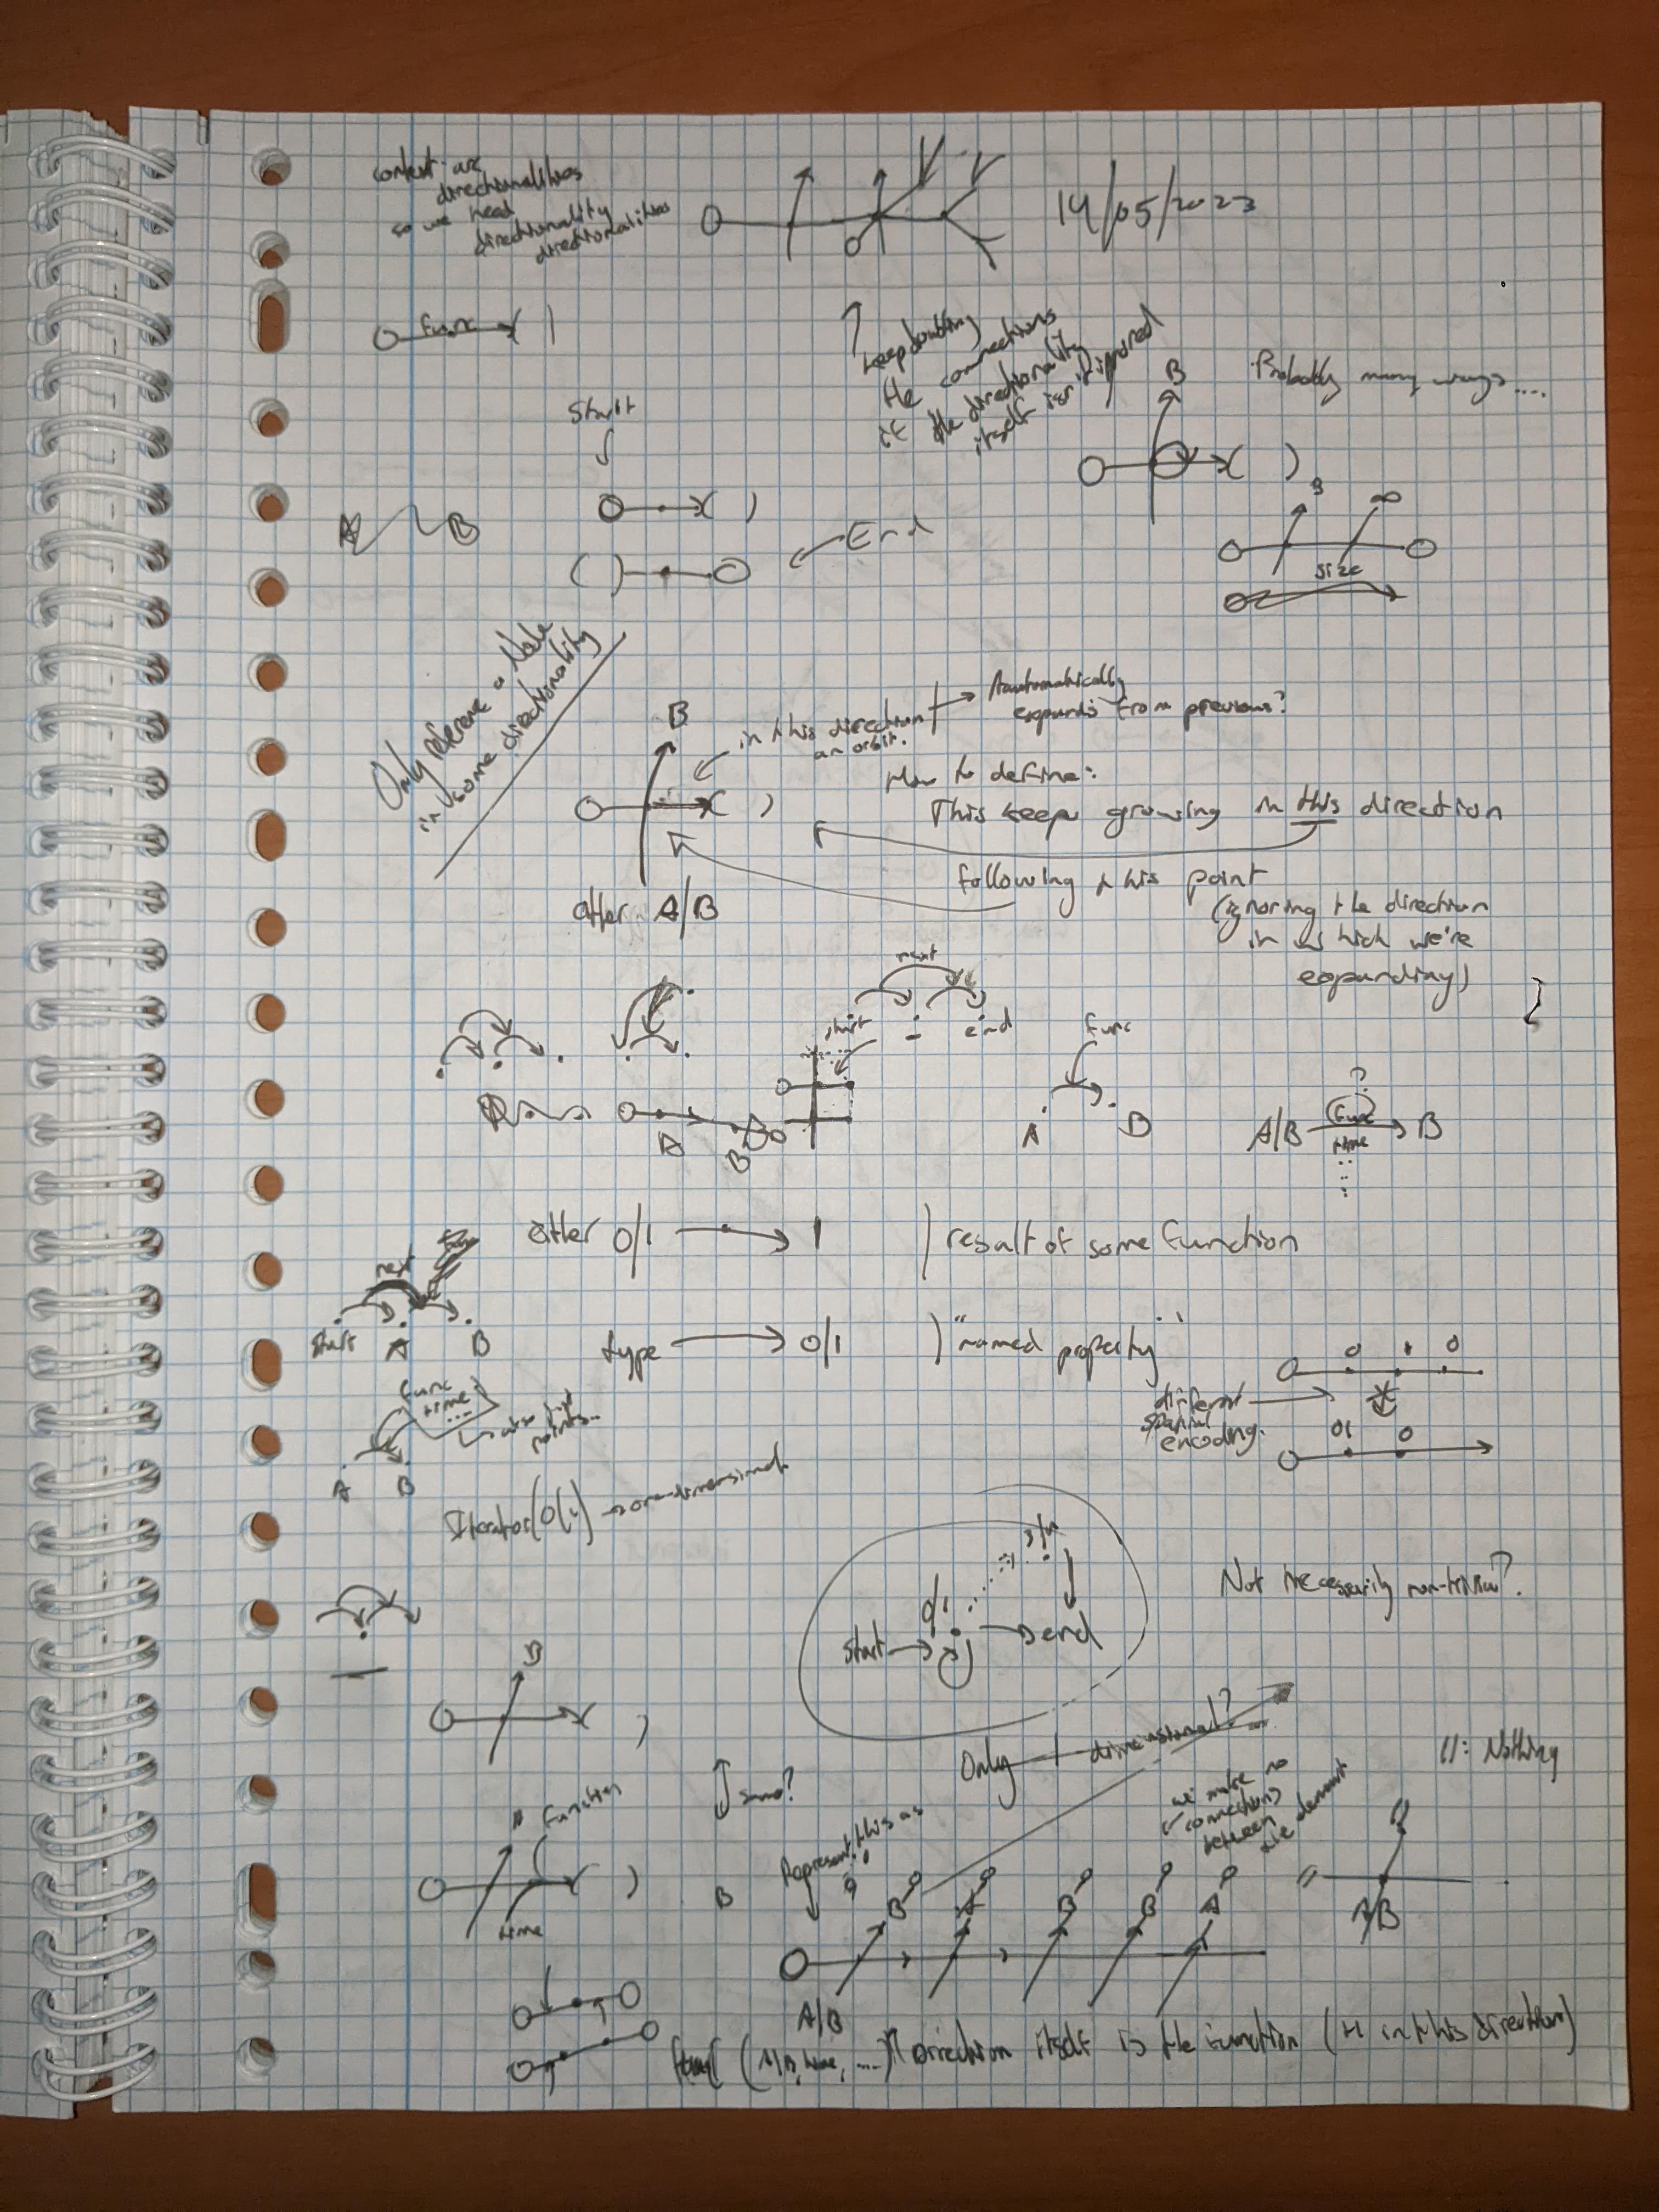 context are
directionalities
so we need
directionality
directionalities
14/05/2023
func
keep doubling
the connections
if the directionality
itself isn't ignored
B
Probably many ways....
Start
A B
End
B
∞
size
Only reference a Node
in some directionality
B
in this direction
an orbit.
Automatically
expands from previous?
How to define:
This keeps growing in this direction
following this point
(ignoring the direction
in which we're
expanding)
either A/B
next
start
end
func
A
B
A
B
?
A/B
func
time
B
either 0/1
1
) result of some function
next
start
A
B
type
0/1
) "named property"
0 1 0
different
encoding.
01 0
func
time
...
A
B
Iterator(0/1) → one-dimensional
3/4
0/1
start
end
Not necessarily
B
Only 1 dimensional?
same?
function
time
B
Represent this as
?
we make no
connections
between
the element
//: Nothing
B A B B A
A/B
A/B
(A/B, time, ....)
Direction itself is the function (H in this direction)